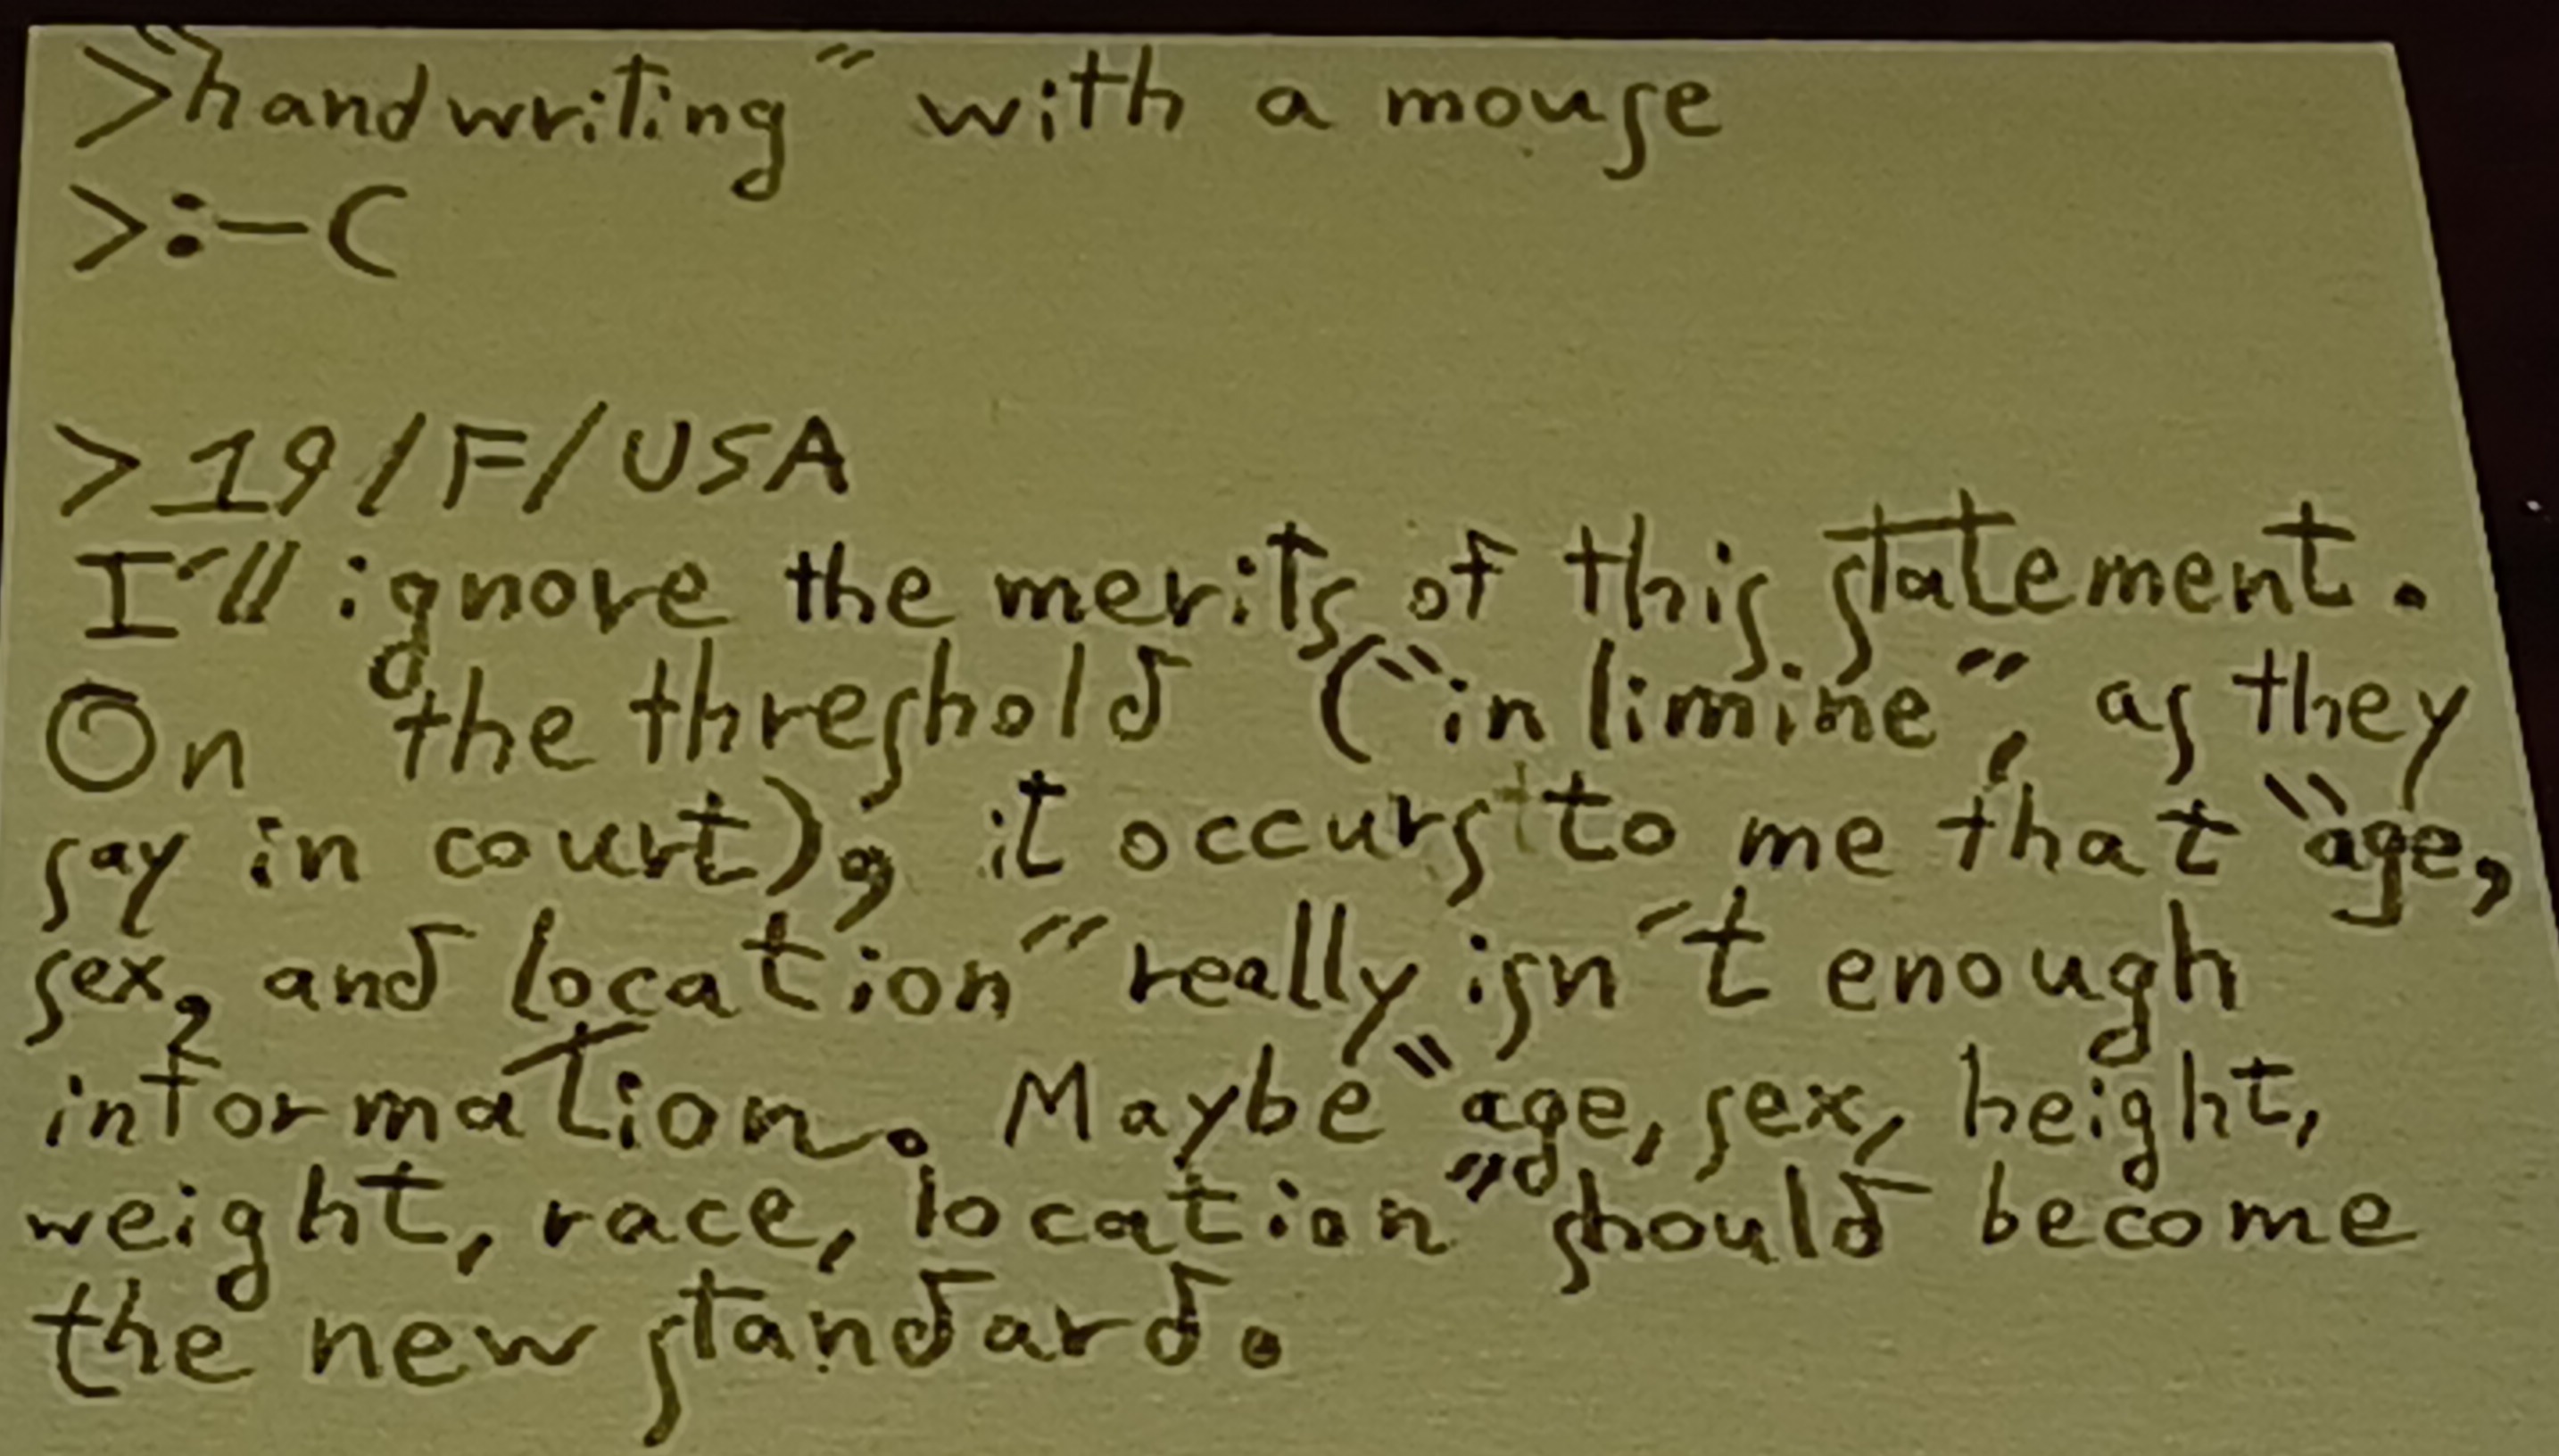 >"handwriting" with a mouse
>:-(
>19/F/USA
I'll ignore the merits of this statement.
On the threshold ("in limine", as they
say in court), it occurs to me that "age,
sex, and location" really isn't enough
information. Maybe "age, sex, height,
weight, race, location" should become
the new standard.